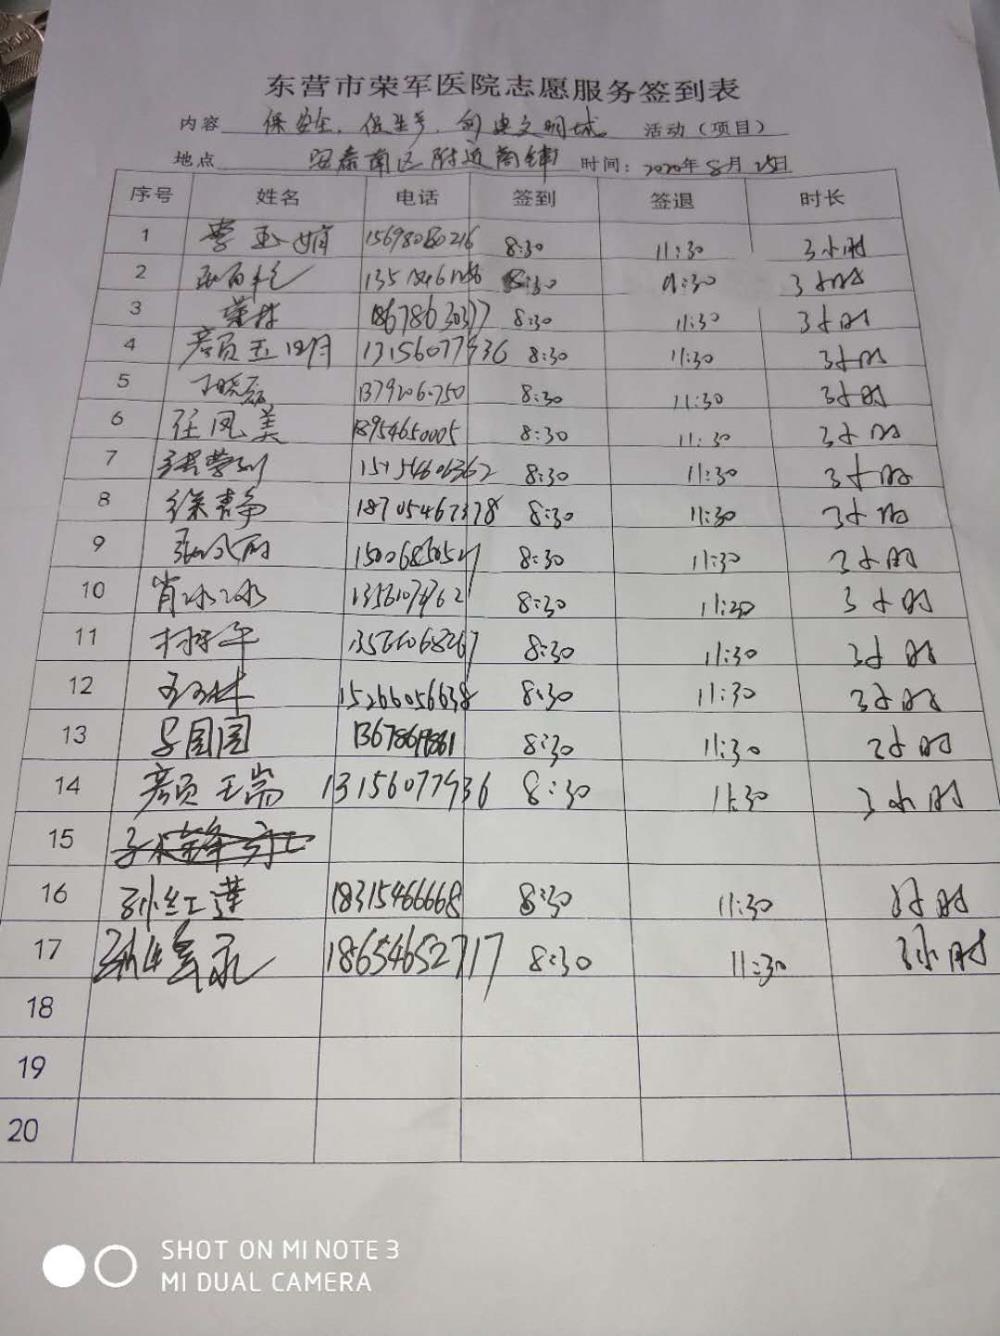 东营市荣军医院志愿服务签到表
内容 保安全、促生产、创建文明城。 活动(项目)
地点 安泰南区附近商铺 时间: 2020年8月25日
序号 姓名 电话 签到 签退 时长
1 李玉娟 15698080216 8:30 11:30 3小时
2 8:30 11:30 3小时
3 荣林 18678630377 8:30 11:30 3小时
4 颜玉明 13156077936 8:30 11:30 3小时
5 丁晓磊 8:30 11:30 3小时
6 任凤美 18954650005 8:30 11:30 3小时
7 15154606362 8:30 11:30 3小时
8 徐青静 18705467378 8:30 11:30 3小时
9 8:30 11:30 3小时
10 肖冰冰 8:30 11:30 3小时
11 13561068267 8:30 11:30 3小时
12 王玉林 15266056638 8:30 11:30 3小时
13 吕园园 8:30 11:30 3小时
14 颜玉嵩 13156077936 8:30 11:30 3小时
15
16 孙红莲 18315466668 8:30 11:30 3小时
17 18654652717 8:30 11:30 3小时
18
19
20
SHOT ON MI NOTE 3
MI DUAL CAMERA